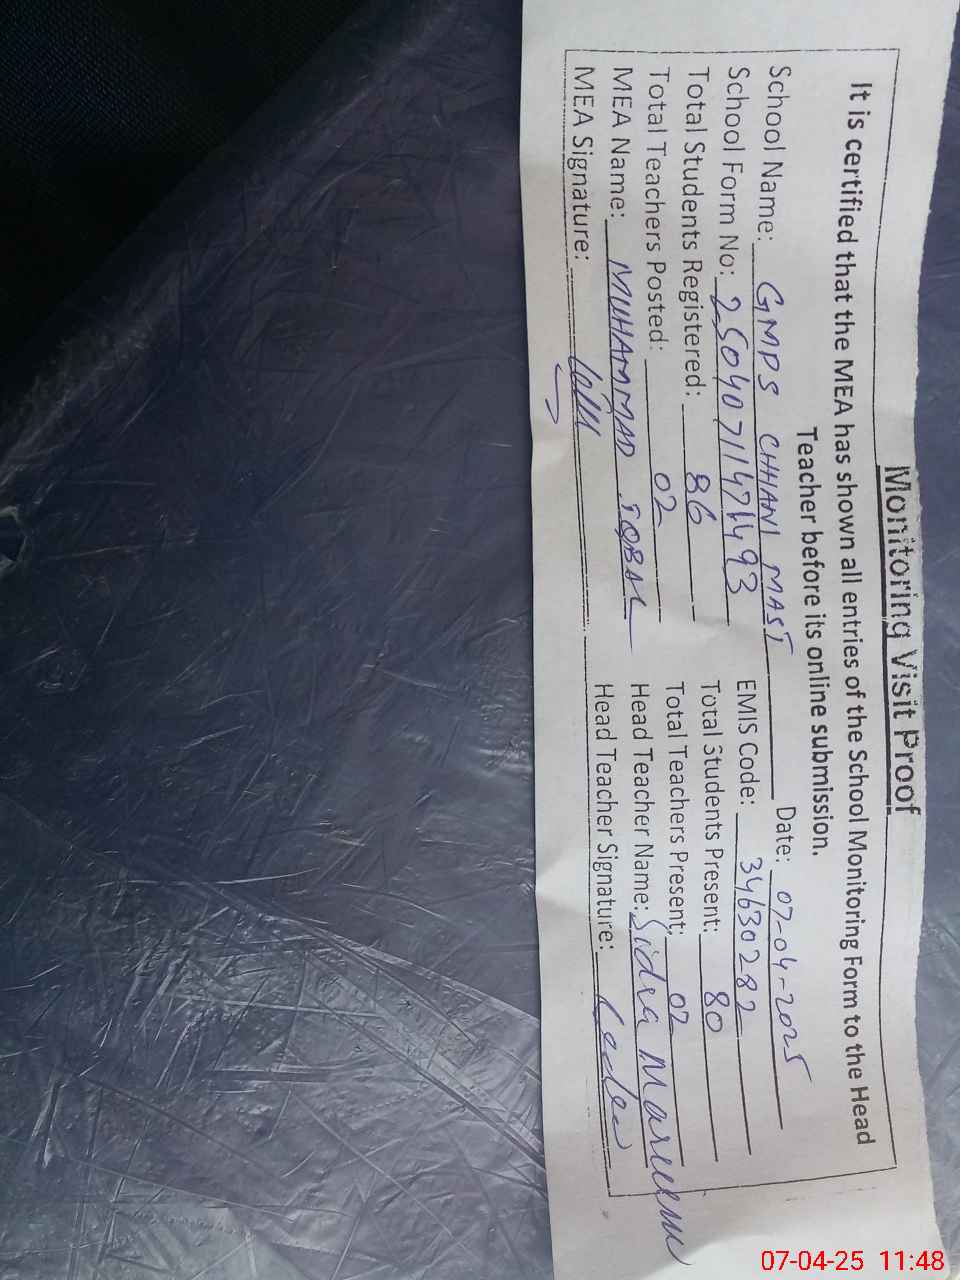 Monitoring Visit Proof
It is certified that the MEA has shown all entries of the School Monitoring Form to the Head
Teacher before its online submission.
School Name: GMPS CHHANI MAST Date: 07-04-2025
School Form No: 25040711471493 EMIS Code: 34630282
Total Students Registered: 86 Total Students Present: 80
Total Teachers Posted: 02 Total Teachers Present: 02
MEA Name: MUHAMMAD IQBAL Head Teacher Name: Sidra
MEA Signature: Head Teacher Signature:
07-04-25 11:48